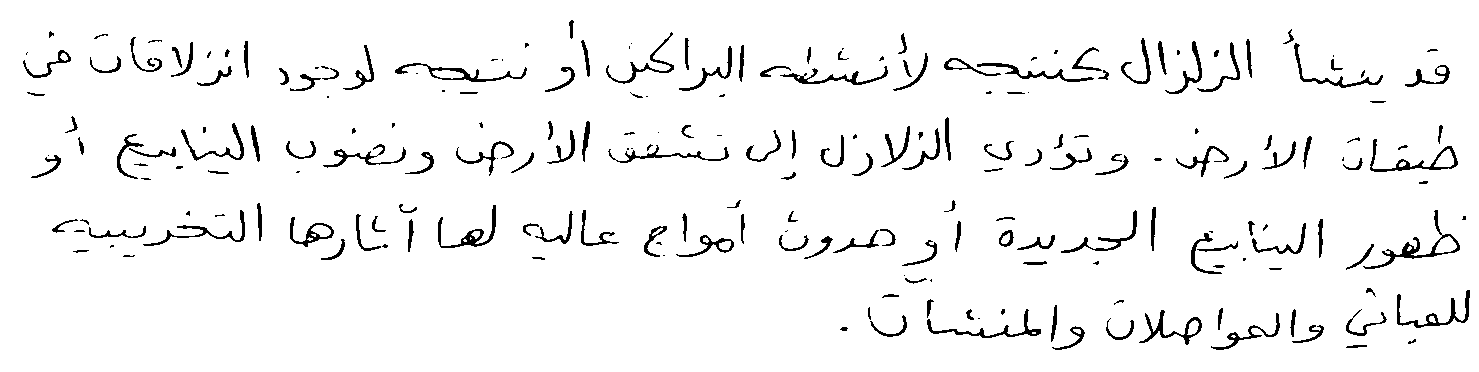 قد ينشأ الزلزال كنتيجه لأنشطه البراكين أو نتيجه لوجود انزلاقات في
طبقات الأرض. وتؤدي الزلازل إلى تشقق الأرض ونضوب الينابيع أو
ظهور الينابيع الجديدة أو حدوث أمواج عاليه لها آثارها التخريبيه
للمباني والمواصلات والمنشآت.